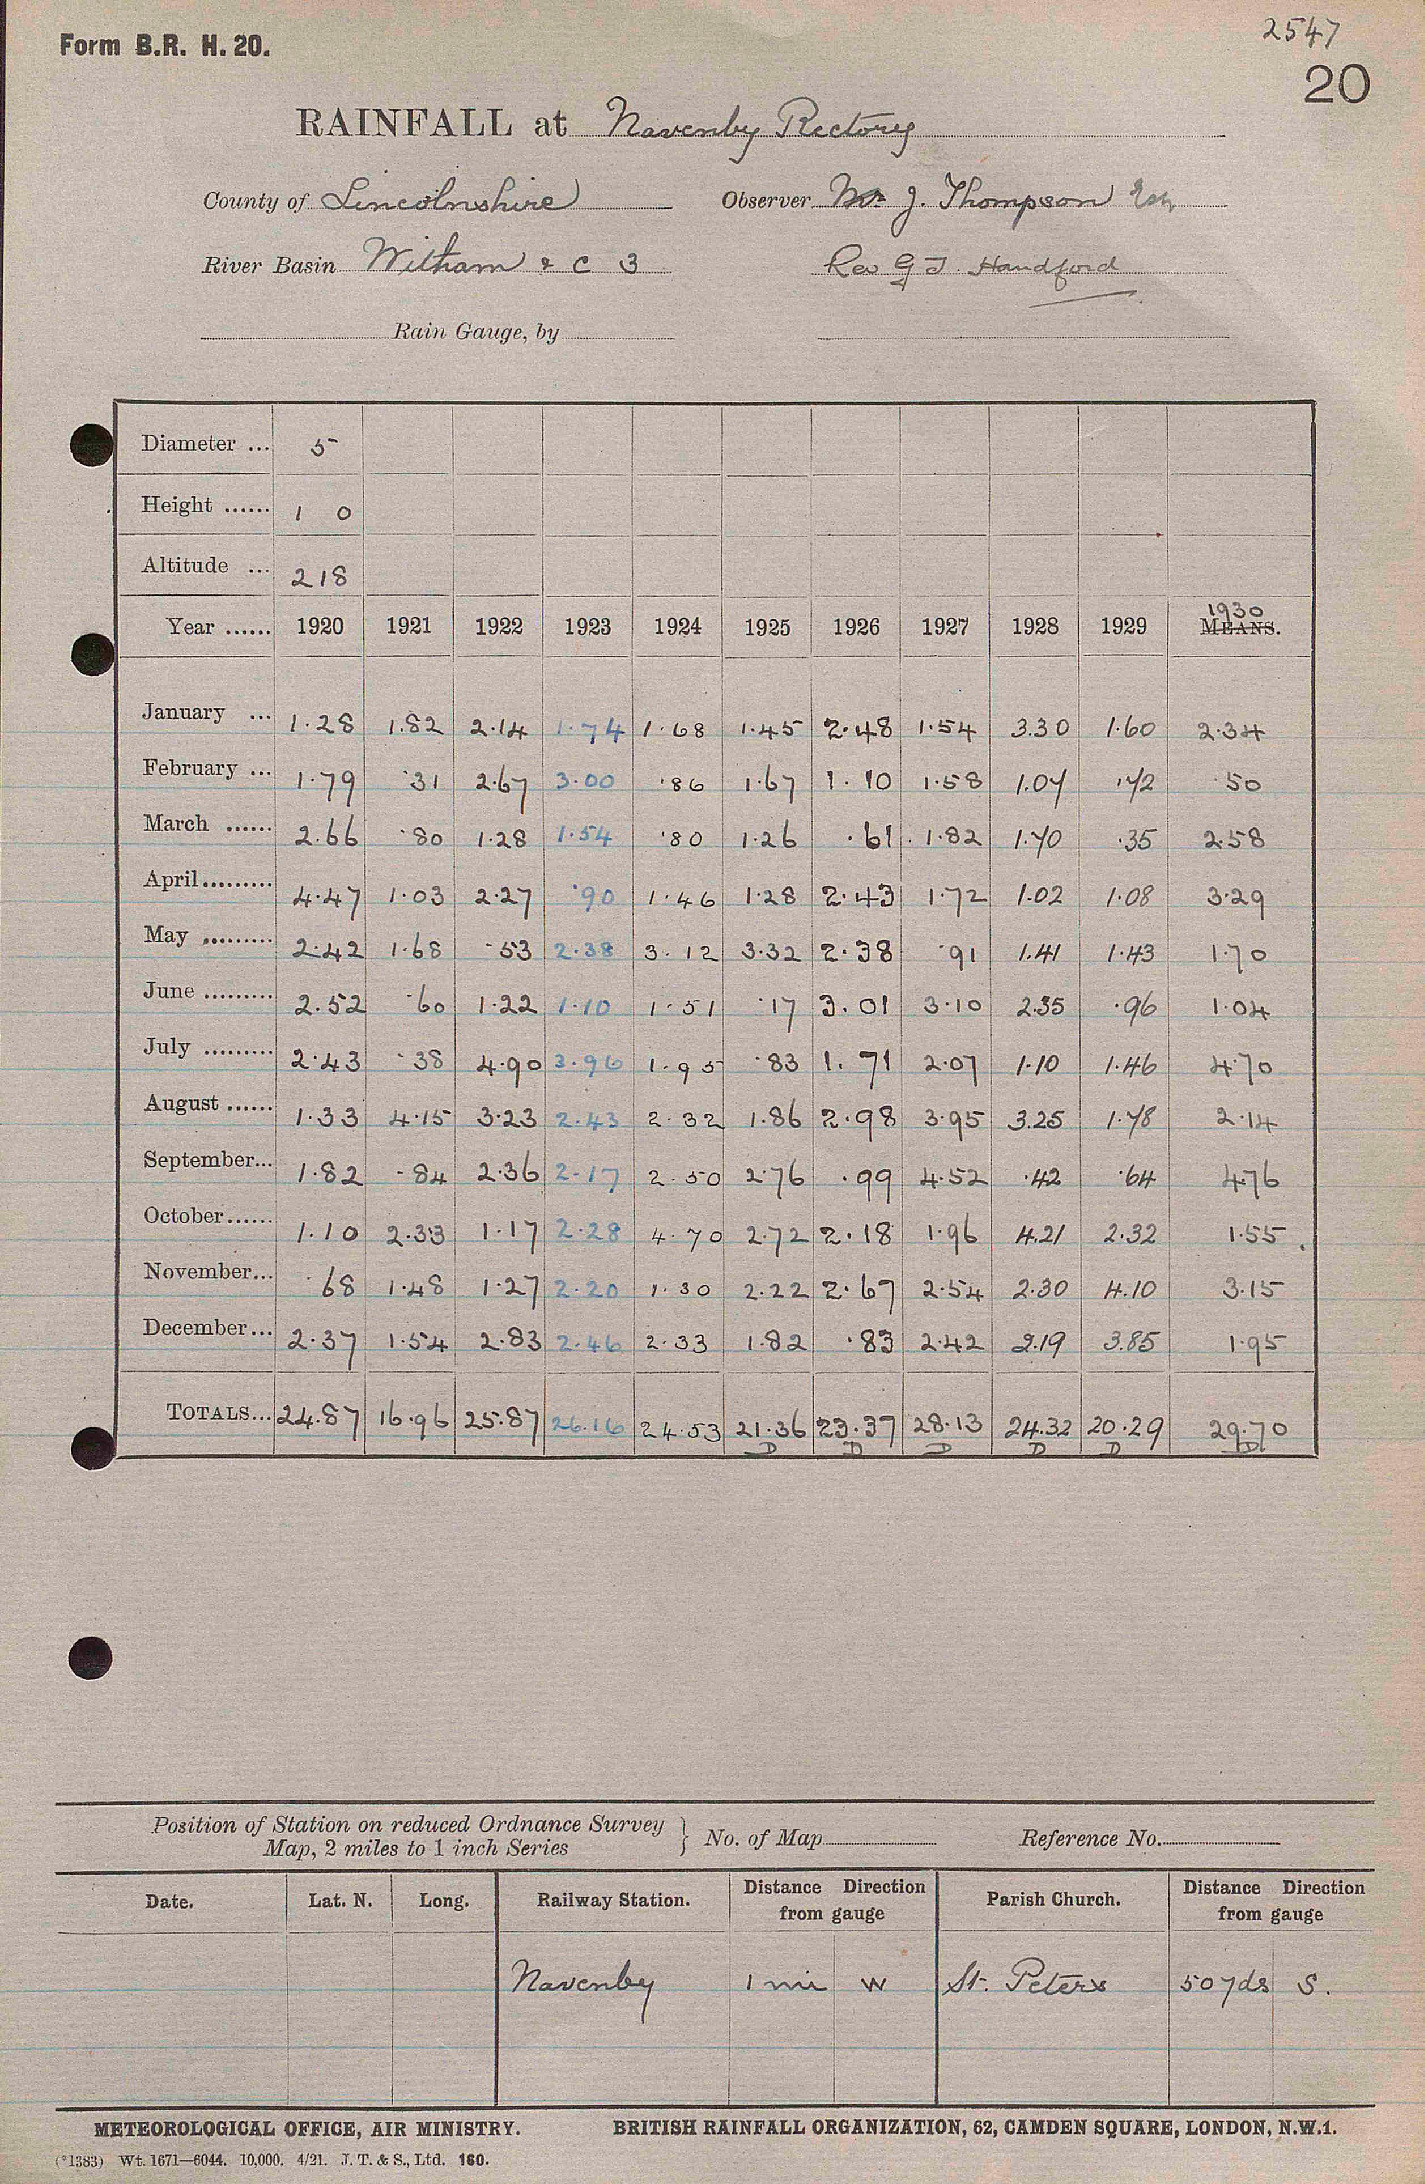 2547
Form B.R. H. 20.
20
RAINFALL at Navenby Rectory
County of Lincolnshire Observer Mr J. Thompson Esq
River Basin Witham & C 3 Rev G J Handford
Rain Gauge, by
Diameter ... 5
Height ...... 1 0
Altitude ... 218
1930
Year ...... 1920 1921 1922 1923 1924 1925 1926 1927 1928 1929 MEANS.
January ... 1.28 1.82 2.14 1.74 1.68 1.45 2.48 1.54 3.30 1.60 2.34
February ... 1.79 .31 2.67 3.00 .86 1.67 1.10 1.58 1.07 .72 .50
March ...... 2.66 .80 1.28 1.54 .80 1.26 .61 1.82 1.70 .35 2.58
April ......... 4.47 1.03 2.27 .90 1.46 1.28 2.43 1.72 1.02 1.08 3.29
May ......... 2.42 1.68 .53 2.38 3.12 3.32 2.38 .91 1.41 1.43 1.70
June ......... 2.52 .60 1.22 1.10 1.51 .17 3.01 3.10 2.35 .96 1.04
July ......... 2.43 .38 4.90 3.96 1.95 .83 1.71 2.07 1.10 1.46 4.70
August ...... 1.33 4.15 3.23 2.43 2.32 1.86 2.98 3.95 3.25 1.78 2.14
September... 1.82 .84 2.36 2.17 2.50 2.76 .99 4.52 .42 .64 4.76
October...... 1.10 2.33 1.17 2.28 4.70 2.72 2.18 1.96 4.21 2.32 1.55
November... .68 1.48 1.27 2.20 1.30 2.22 2.67 2.54 2.30 4.10 3.15
December... 2.37 1.54 2.83 2.46 2.33 1.82 .83 2.42 2.19 3.85 1.95
TOTALS... 24.87 16.96 25.87 26.16 24.53 21.36 23.37 28.13 24.32 20.29 29.70
D D D D D D
Position of Station on reduced Ordnance Survey
Map, 2 miles to 1 inch Series } No. of Map Reference No.
Date. Lat. N. Long. Railway Station. Distance Direction from gauge Parish Church. Distance Direction from gauge
Navenby 1 mi W St. Peters 50 yds S.
METEOROLOGICAL OFFICE, AIR MINISTRY. BRITISH RAINFALL ORGANIZATION, 62, CAMDEN SQUARE, LONDON, N.W.1.
(*1383) Wt. 1671—6044. 10,000. 4/21. J. T. & S., Ltd. 160.